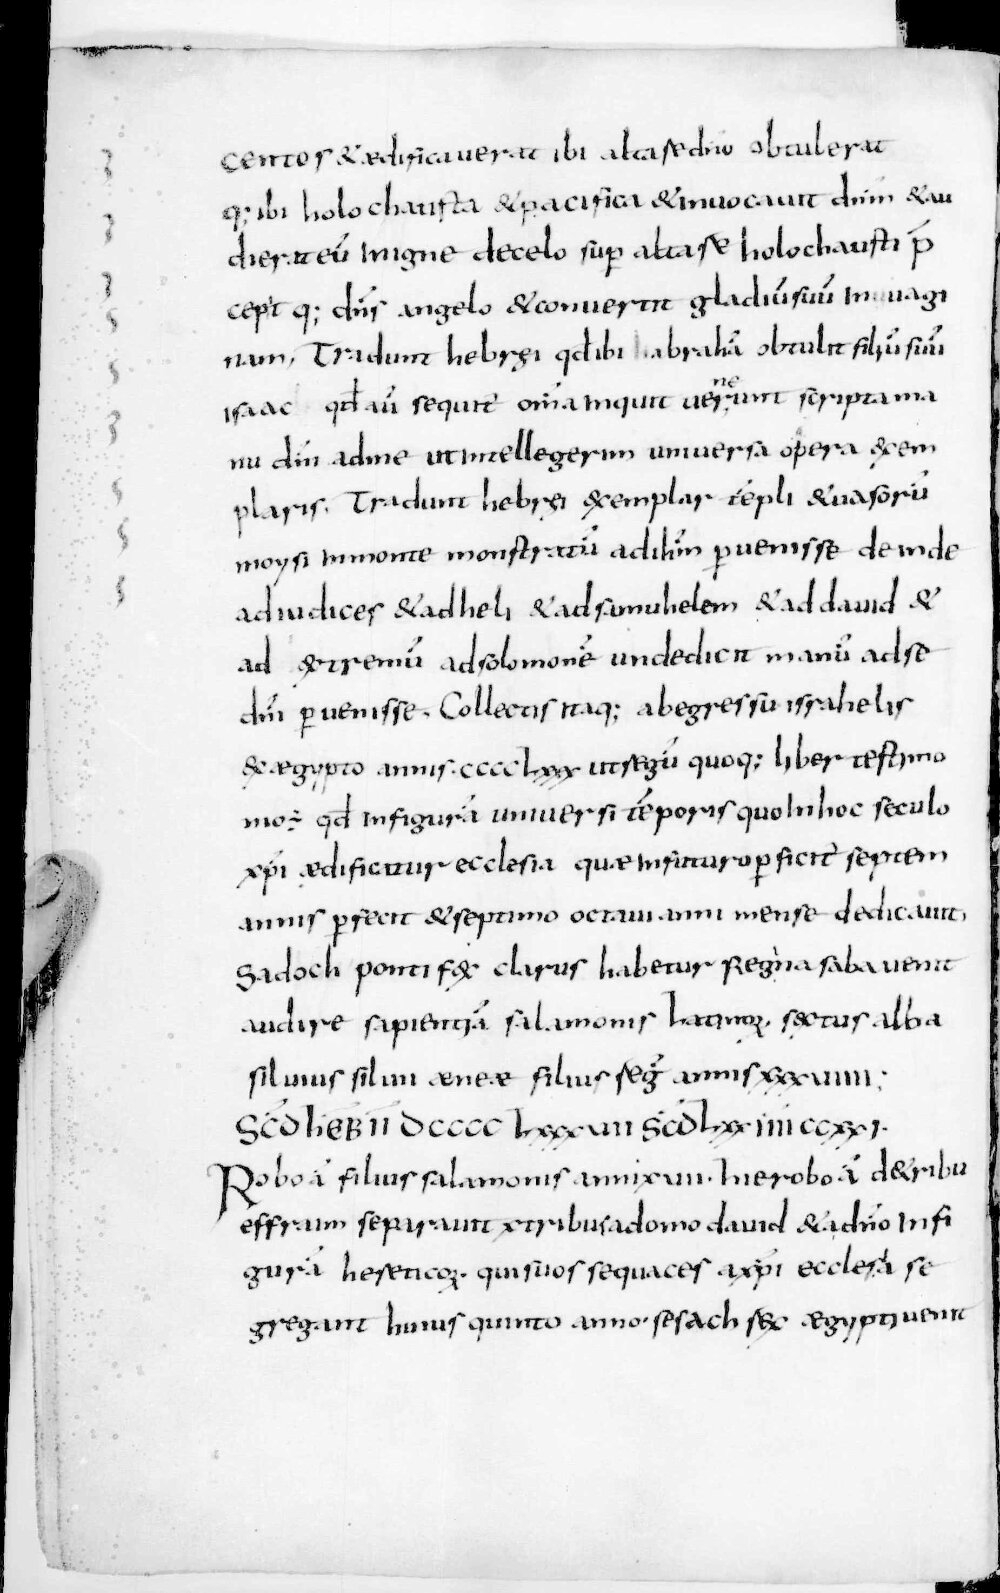 centos & ædificaverat ibi altare dn̄o obtulerat
q; ibi holochausta & pacifica & invocavit dn̄m & au
dierat eū in igne de celo sup altare holochausti p̄
cepit q; dn̄s angelo & convertit gladiū suū in vagi
nam. Tradunt hebręi qđ ibi habrahā obtulit filiū suū
isaac qđ aū sequit̄ om̄ia inquit venerunt scripta ma
nu dn̄i ad me ut intellegerem universa opera exem
plaris. Tradunt hebręi exemplar tēpli & vasorū
moysi in monte monstratū ad ihm̄ pvenisse deinde
ad iudices & ad heli & ad samuhelem & ad david &
ad extremū ad solomonē unde dicit manū ad se
dn̄i pvenisse. Collectis itaq; ab egressu israhelis
ex ægypto annis cccclxxx ut regū quoq; liber testimo
nio ē qđ in figurā universi tēporis quo in hoc seculo
xp̄i ædificatur ecclesia quæ in futuro pficit̄ septem
annis pfecit & septimo octavi anni mense dedicavit.
Sadoch pontifex clarus habetur Regina saba venit
audire sapientiā salamonis Latinoꝝ sextus alba
silvius silvii æneæ filius regn̄ annis xxxviiii;
Sc̄d hEB II DCCCC LxxxvII Sc̄d Lxx IIII ccxxI.
Roboā filius salamonis anni xvii. hieroboā de tribu
effraim separavit x tribus a domo david & a dn̄o in fi
gurā hereticoꝝ qui suos sequaces a xp̄i ecclesia se
gregant huius quinto anno sesach rex ægypti venit